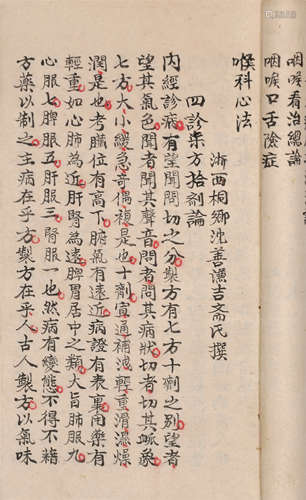 咽喉看治總論
咽喉口舌險症
喉科心法
浙西桐鄉沈善謙吉齋氏撰
四診柒方拾劑論
內經診病有望聞問切之分製方有七方十劑之別望者
望其氣色聞者聞其聲音問者問其病狀切者切其脈象
七方大小緩急奇偶複是也十劑宣通補洩輕重滑澀燥
潤是也考臟位有高下腑氣有遠近病證有表裏用藥有
輕重如心肺為近肝腎為遠脾胃居中之類大旨肺服九
心服七脾服五肝服三腎服一也然病有變態不得不藉
方藥以制之主病在乎方製方在乎人古人製方以氣味